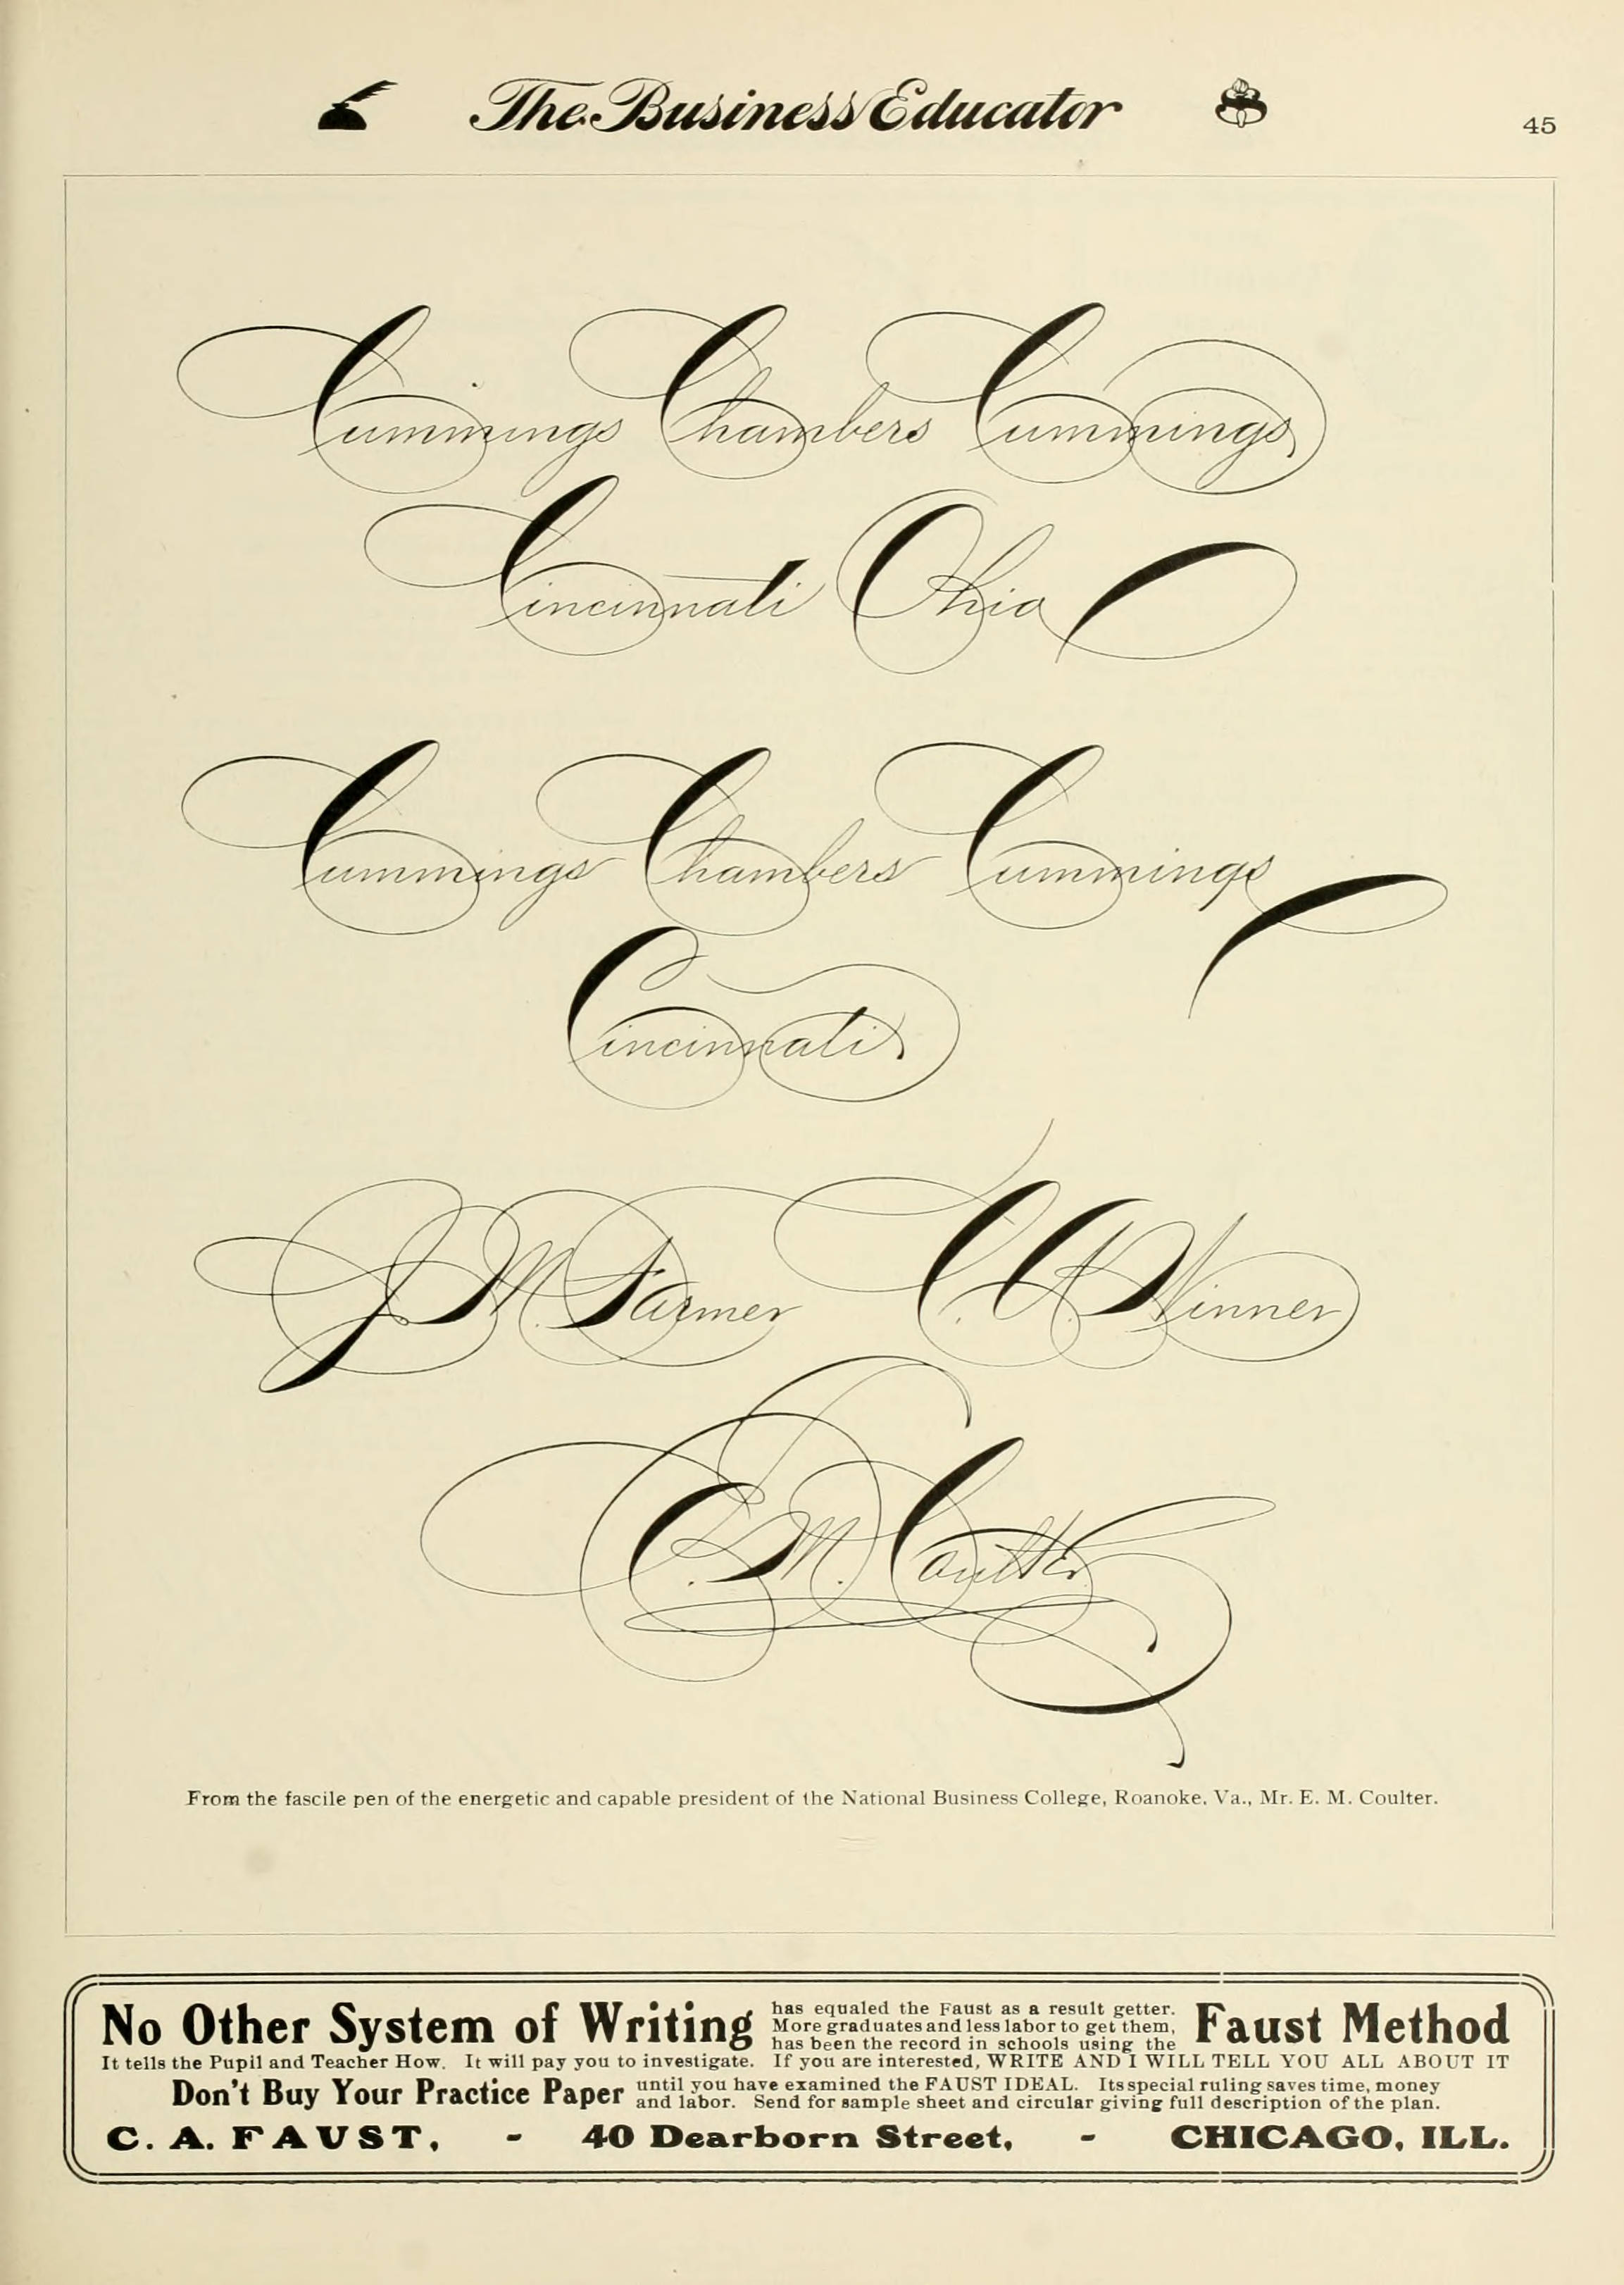 The Business Educator
45
Cummings Chambers Cummings
Cincinnati Ohio
Cummings Chambers Cummings
Cincinnati
J. M. Farmer C. A. Winner
E. M. Coulter
From the fascile pen of the energetic and capable president of the National Business College, Roanoke, Va., Mr. E. M. Coulter.
No Other System of Writing has equaled the Faust as a result getter. More graduates and less labor to get them, has been the record in schools using the Faust Method
It tells the Pupil and Teacher How. It will pay you to investigate. If you are interested, WRITE AND I WILL TELL YOU ALL ABOUT IT
Don't Buy Your Practice Paper until you have examined the FAUST IDEAL. Its special ruling saves time, money and labor. Send for sample sheet and circular giving full description of the plan.
C. A. FAUST, - 40 Dearborn Street, - CHICAGO, ILL.